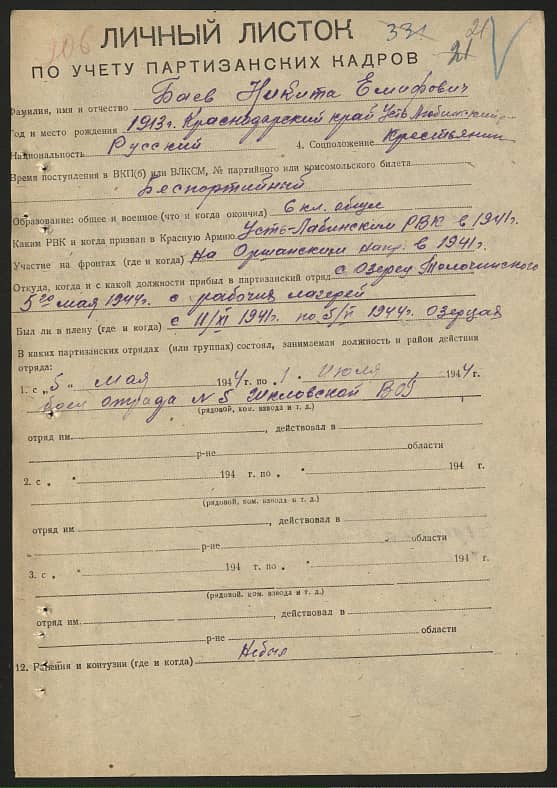 106 ЛИЧНЫЙ ЛИСТОК 331 21
ПО УЧЕТУ ПАРТИЗАНСКИХ КАДРОВ 21
Фамилия, имя и отчество Баев Никита Емифович
Год и место рождения 1913 г. Краснодарский край Усть
Национальность Русский 4. Соцположение Крестьянин
Время поступления в ВКП(б) или ВЛКСМ, № партийного или комсомольского билета
Беспортийный
Образование: общее и военное (что и когда окончил) 6 кл. общее
Каким РВК и когда призван в Красную Армию Усть-Лабинским РВК в 1941 г.
Участие на фронтах (где и когда) На Оршанском напр. в 1941 г.
Откуда, когда и с какой должности прибыл в партизанский отряд с Озерец Толочинского
5го мая 1944 г. с рабочих лагерей
Был ли в плену (где и когда) с 11/XI 1941 г. по 5/V 1944 г. Озерцах
В каких партизанских отрядах (или группах) состоял, занимаемая должность и район действия
отряда:
1. с „5" мая 1944 г. по „1" июля 1944 г.
боец отряда N 5 Шкловской ВОГ
(рядовой, ком. взвода и т. д.)
отряд им. , действовал в
р-не области
2. с „ " 194 г. по „ " 194 г.
(рядовой, ком. взвода и т. д.)
отряд им , действовал в
р-не области
3. с „ " 194 г. по „ " 194 г.
(рядовой, ком. взвода и т. д.)
отряд им. , действовал в
р-не области
12. Ранения и контузии (где и когда) Небыл